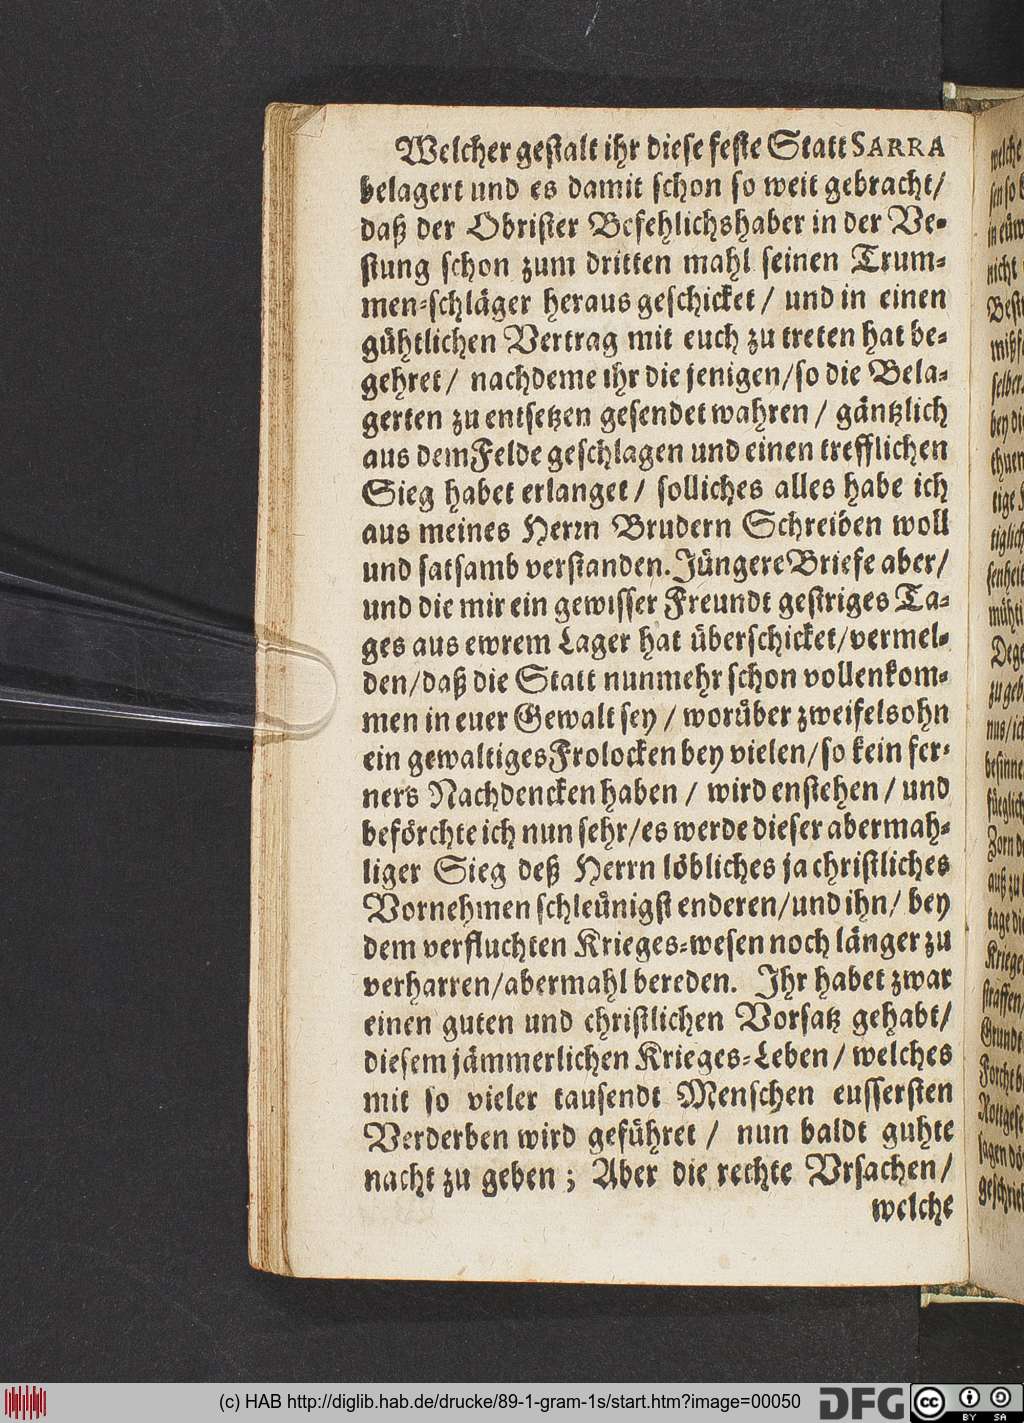 Welcher gestalt ihr diese feste Statt SARRA
belagert und es damit schon so weit gebracht/
daß der Obrister Befehlichshaber in der Ve-
stung schon zum dritten mahl seinen Trum-
men-schläger heraus geschicket / und in einen
gühtlichen Vertrag mit euch zu treten hat be-
gehret / nachdeme ihr die jenigen/so die Bela-
gerten zu entsetzen gesendet wahren / gäntzlich
aus dem Felde geschlagen und einen trefflichen
Sieg habet erlanget / solliches alles habe ich
aus meines Herrn Brudern Schreiben woll
und satsamb verstanden. Jüngere Briefe aber/
und die mir ein gewisser Freundt gestriges Ta-
ges aus ewrem Lager hat überschicket/vermel-
den/daß die Statt nunmehr schon vollenkom-
men in euer Gewalt sey / worüber zweifelsohn
ein gewaltiges Frolocken bey vielen/so kein fer-
ners Nachdencken haben / wird enstehen / und
beförchte ich nun sehr/es werde dieser abermah-
liger Sieg deß Herrn löbliches ja christliches
Vornehmen schleünigst enderen/und ihn/ bey
dem verfluchten Krieges-wesen noch länger zu
verharren/abermahl bereden. Ihr habet zwar
einen guten und christlichen Vorsatz gehabt/
diesem jämmerlichen Krieges-Leben / welches
mit so vieler tausendt Menschen eussersten
Verderben wird geführet / nun baldt guhte
nacht zu geben ; Aber die rechte Vrsachen/
welche
welche
nicht
(c) HAB http://diglib.hab.de/drucke/89-1-gram-1s/start.htm?image=00050
DFG
cc BY SA